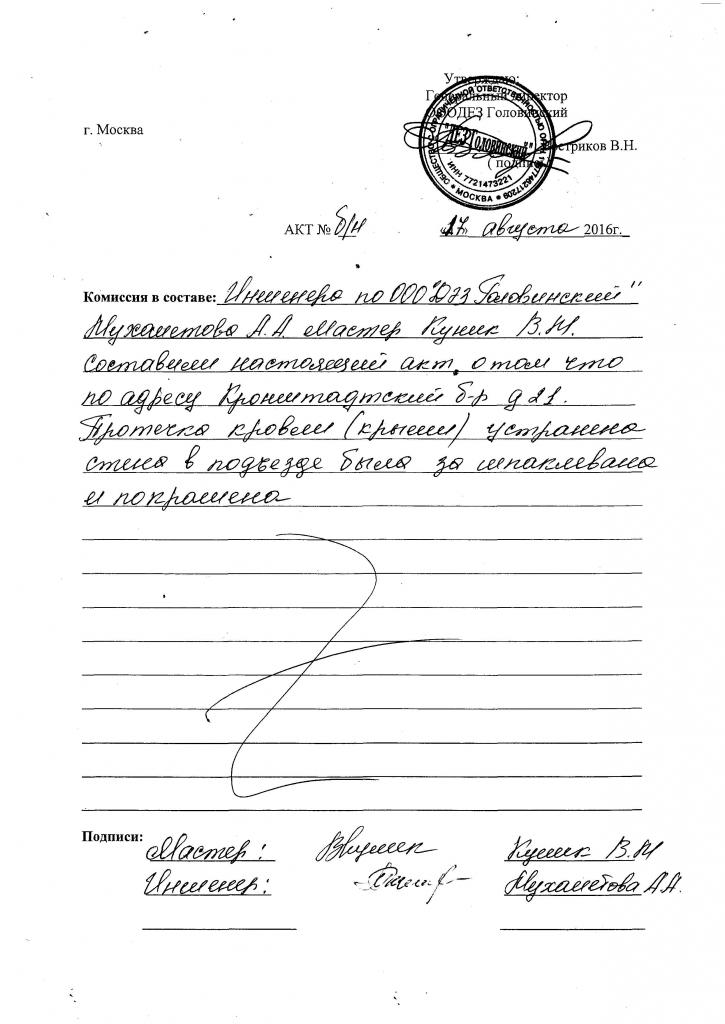 Утверждаю:
Генеральный директор
ООО ДЕЗ Головинский
г. Москва
Востриков В.Н.
( подпись )
ОБЩЕСТВО С ОГРАНИЧЕННОЙ ОТВЕТСТВЕННОСТЬЮ
"ДЕЗ Головинский"
ИНН 7721473221
МОСКВА
АКТ № б/н «17» августа 2016г.
Комиссия в составе: Инженера по ООО "ДЭЗ Головинский"
Мухаметова А.А. мастер Кумик В.И.
составили настоящий акт, о том что
по адресу Кронштадтский б-р д 21.
Протечка кровли (крыши) устранена
стена в подъезде была за шпаклевана
и покрашена
Подписи:
Мастер: Кумик В.И
Инженер: Мухаметова А.А.